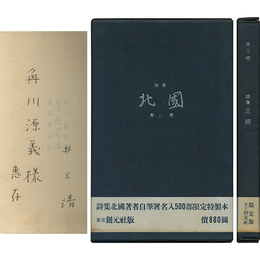 角川源義様
恵存
井上靖
詩集
北國
井上靖
詩集北國著者自筆署名入500部限定特製本
東京創元社版 價880圓
井上靖
詩集 北國
限定版
東京創元社